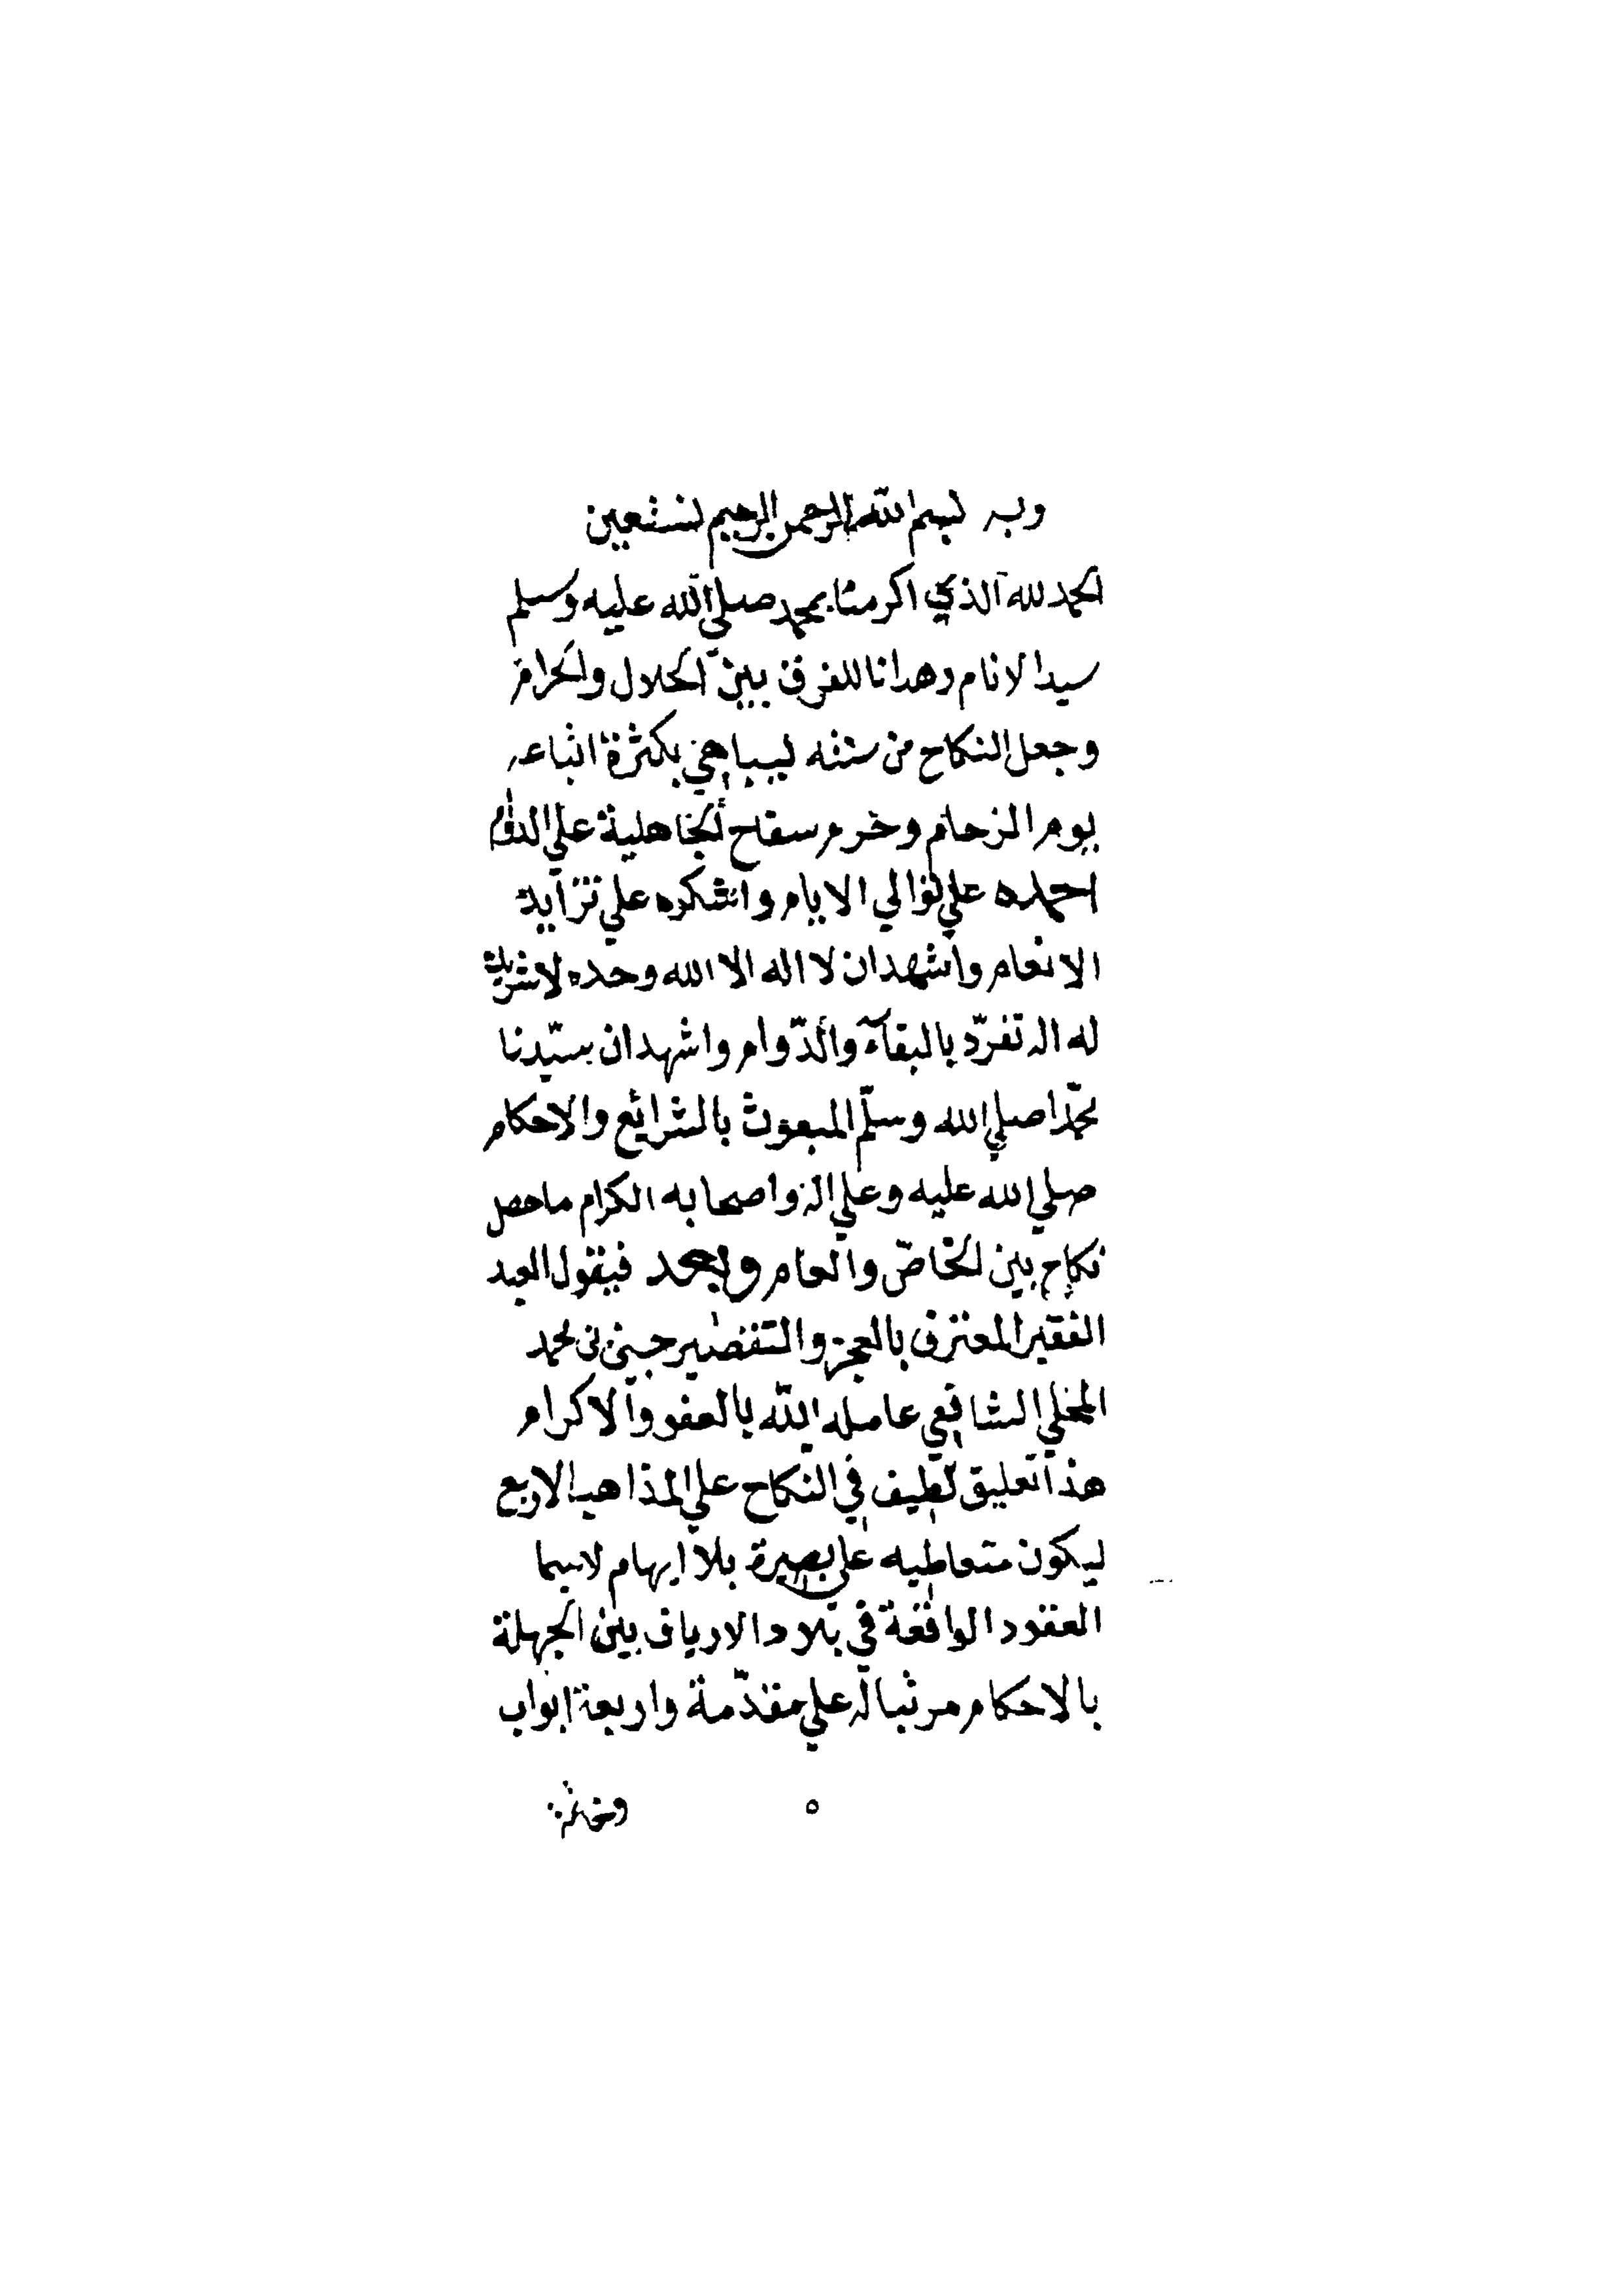 وبه بسم الله الرحمن الرحيم نستعين
الحمد لله الذي اكرمنا بمحمد صلي الله عليه وسلم
سيد الانام وهدانا للفرق بين الحلال والحرام
وجعل النكاح من سنته ليباهي بكثرة اتباعه
يوم الزحام وحرم سفاح الجاهلية علي الدوام
احمده علي توالي الايام واشكره علي تزايد
الانعام واشهد ان لا اله الا الله وحده لا شريك
له اله تفرّد بالبقآء والدّوام واشهد ان سيّدنا
محمّدا صلي الله وسلّم المبعوث بالشرائع والاحكام
صلي الله عليه وعلي اله واصحابه الكرام ما حصل
نكاح بين الخاصّ والعام وبعد فيقول العبد
الفقير المعترف بالعجز والتقصير حسين بن محمد
المحلي الشافعي عامله الله بالعفو والاكرام
هذا تعليق لطيف في النكاح علي المذاهب الاربع
ليكون متعاطيه علي بصيرة بلا ايهام لاسيما
العقود الواقعة في بلاد الارياف بين الجهلة
بالاحكام مرتبا له علي مقدّمة واربعة ابواب
وخاتمة
٥